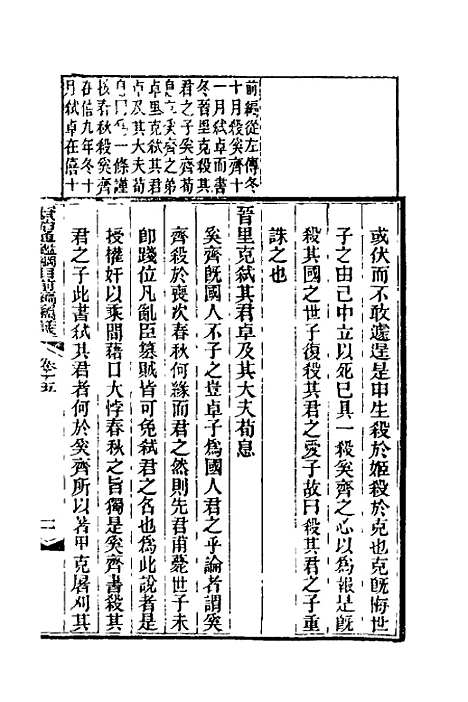 前編從左傳冬
十月殺奚齊十
一月弑卓而書
冬晉里克殺其
君之子奚齊荀
息立奚齊之弟
卓里克弑其君
卓及其大夫荀
息一條謹
按春秋殺奚齊
在僖九年冬十
月弑卓在僖十
或伏而不敢遽逞是申生殺於姬殺於克也克旣悔世
子之由己中立以死已具一殺奚齊之心以爲報是旣
殺其國之世子復殺其君之愛子故曰殺其君之子重
誅之也
晉里克弑其君卓及其大夫荀息
奚齊旣國人不子之豈卓子爲國人君之乎論者謂奚
齊殺於喪次春秋何緣而君之然則先君甫薨世子未
卽踐位凡亂臣篡賊皆可免弑君之名也爲此說者是
授權奸以乘間藉口大悖春秋之旨獨是奚齊書殺其
君之子此書弑其君者何於奚齊所以著甲克屠刈其
資治通鑑綱目前編
卷十五